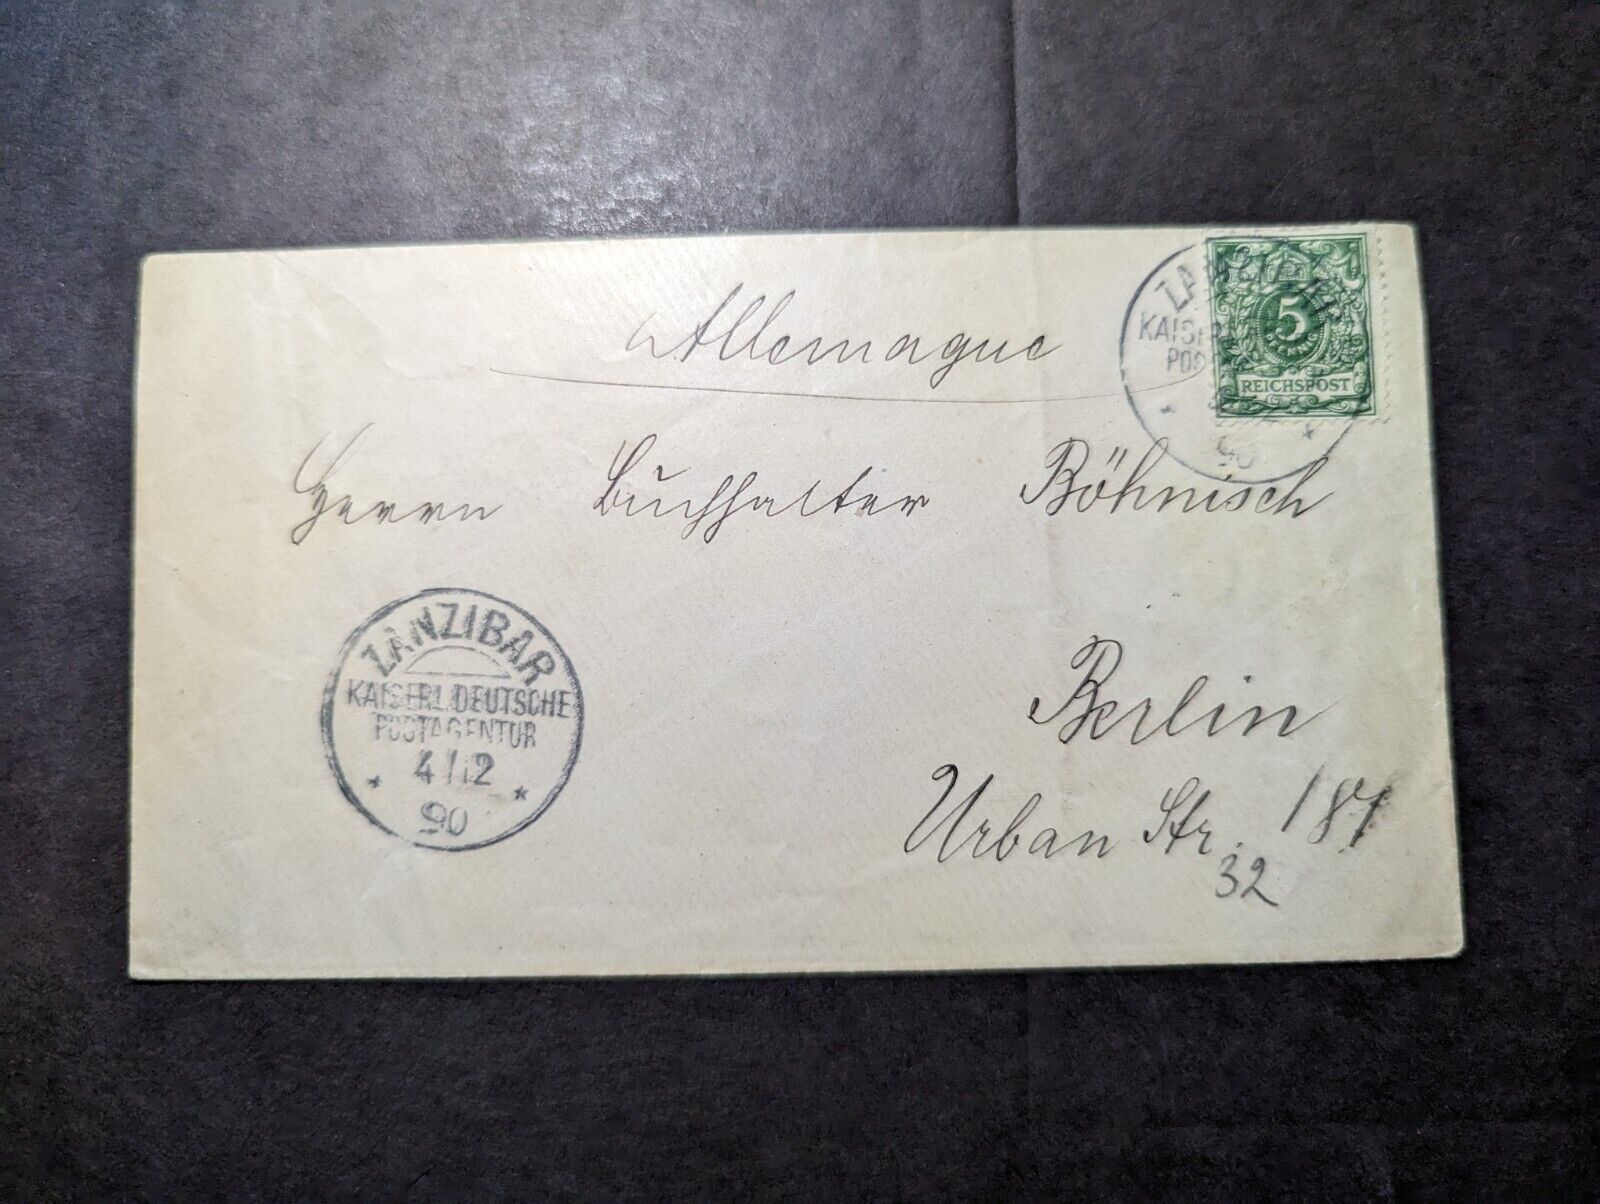 Allemague
ZANZIBAR
KAISERL.
POS
90
5
REICHSPOST
Herrn Buchhalter Böhnisch
ZANZIBAR
KAISERL. DEUTSCHE
POSTAGENTUR
4/12
90
Berlin
Urban Str. 187
32